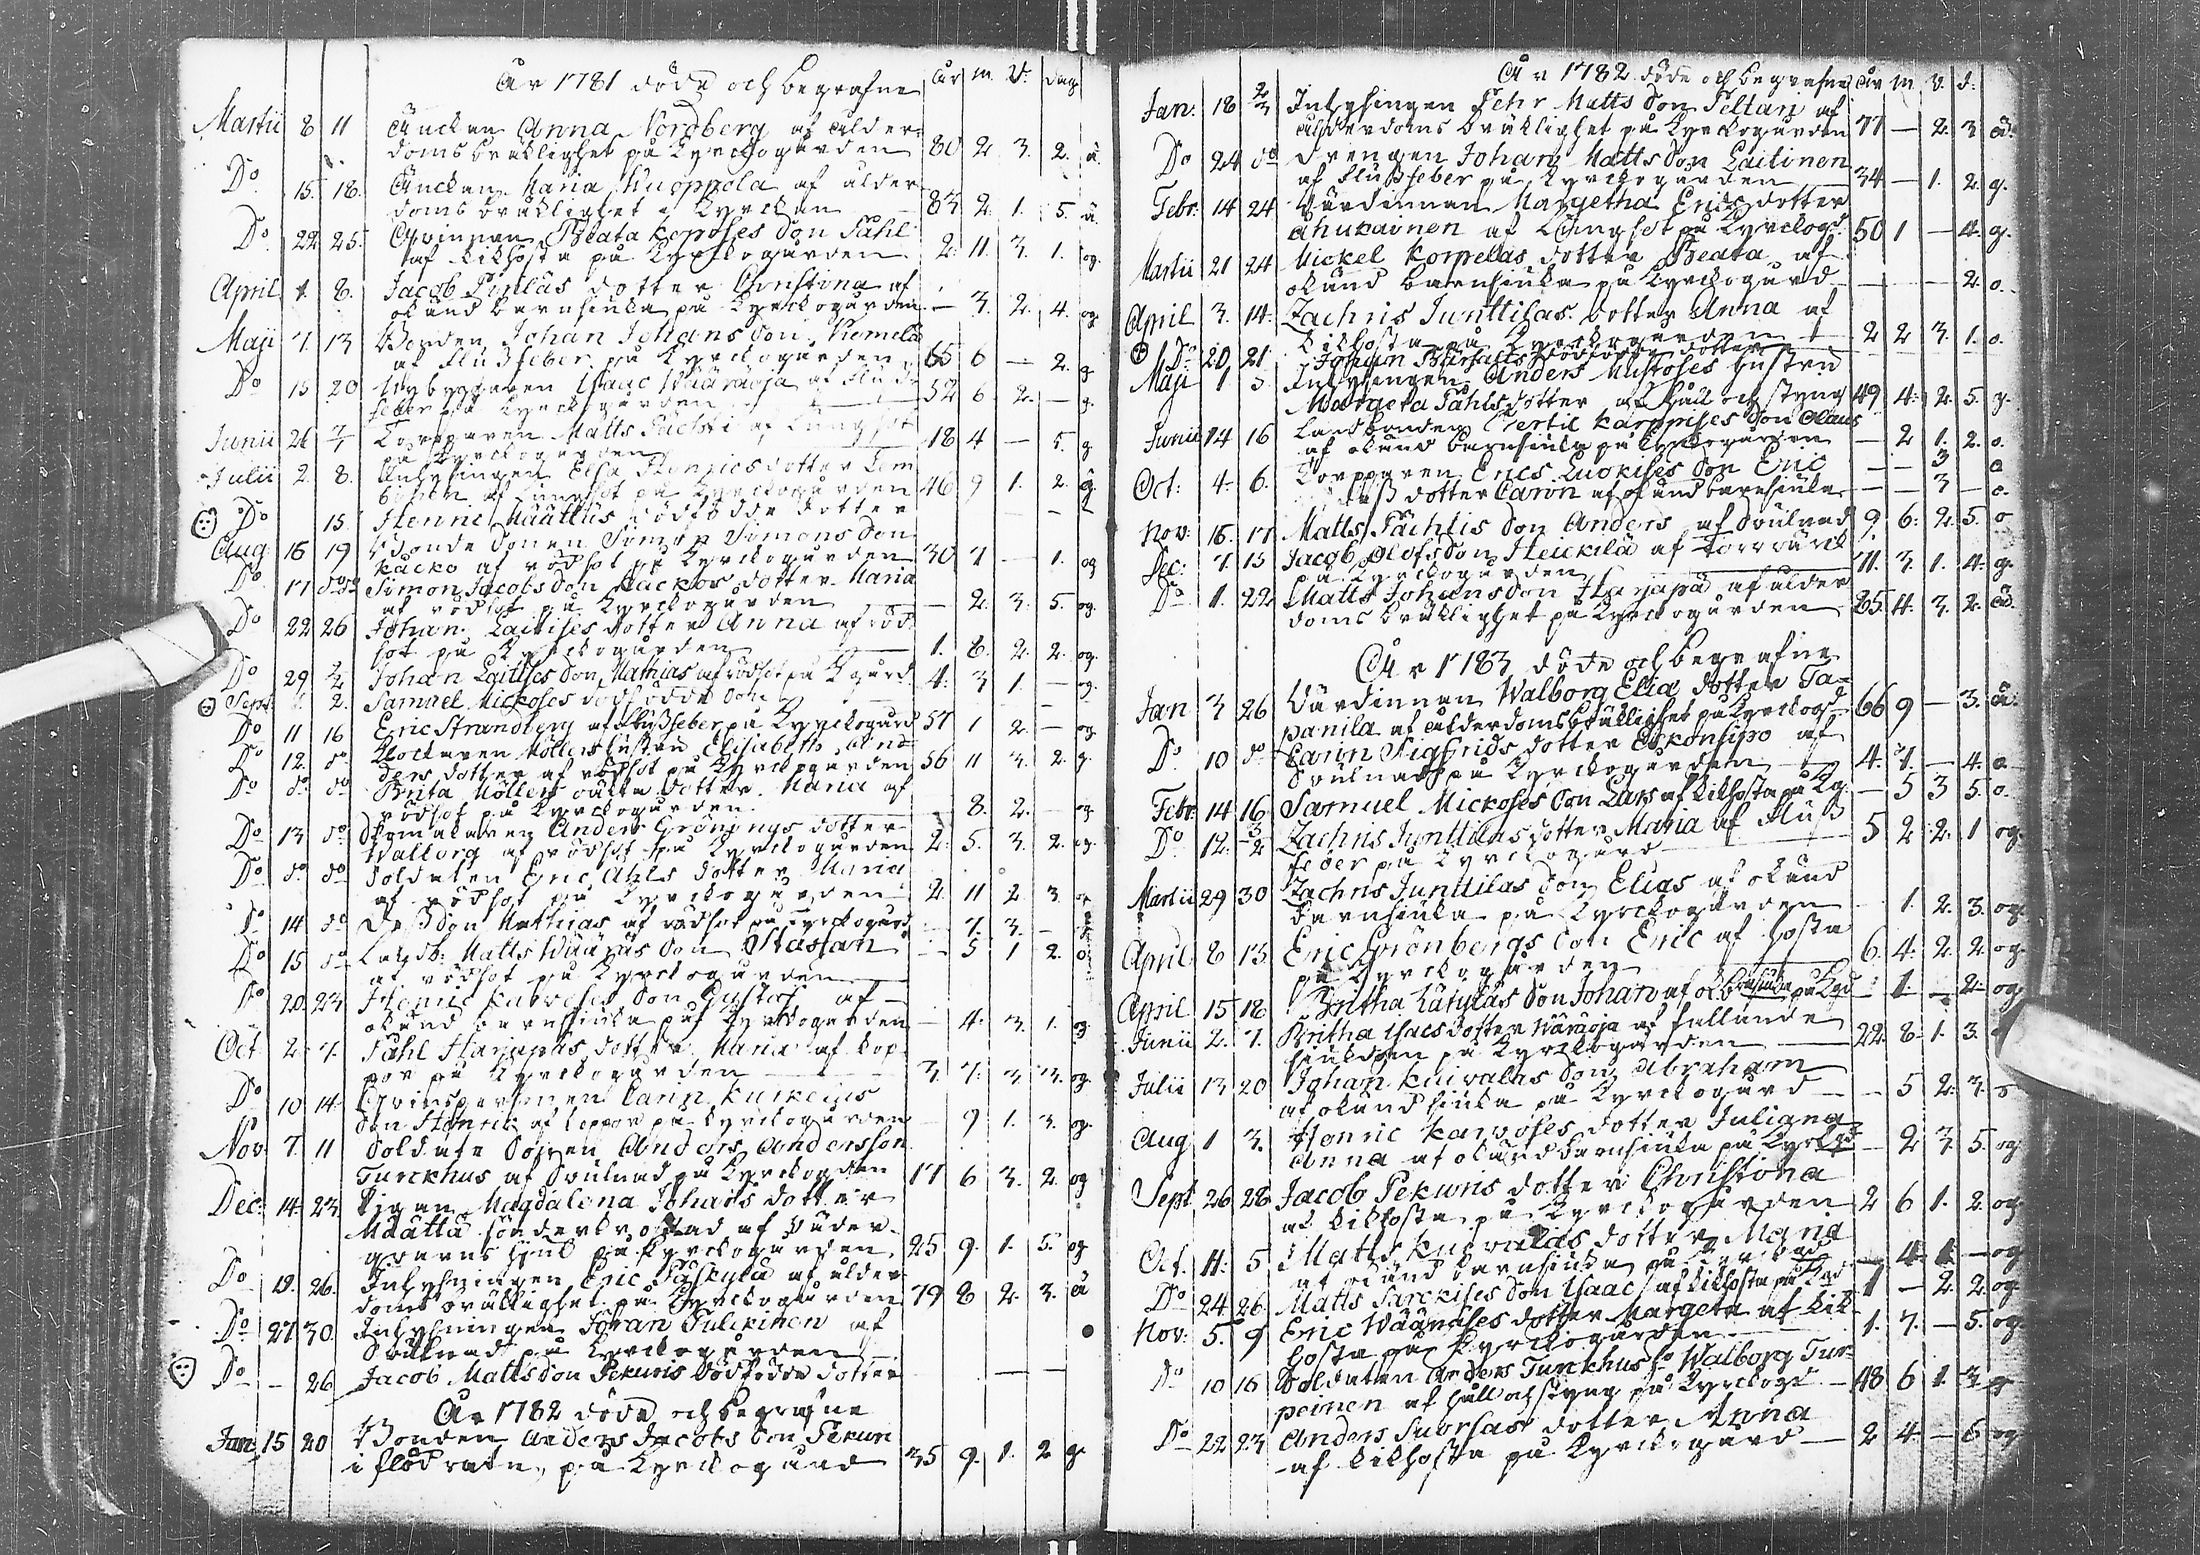 År 1781 döde och begrafne År m. V. dag
Martii 8 11 Änckan Anna Nordberg af ålder-
doms bräklighet på Kyrckogården 80 2. 3. 2. ä.
Do 15. 18. Änckan Maria Kuoppola af ålder
doms bräklighet i Kyrckan 83 2. 1. 5. ä
Do 22 25. Qvinnan Beata Son Påhl
af kikhosta på Kyrckogården 2. 11. 3. 1. og.
April 1. 8. Jacob dotter Christina af
okänd barnsiuka på Kyrckogården — 3. 2. 4. og
Maji 7. 13 Bonden Johan Johansson Niemelä
af flußfeber på Kyrckogården 65 6 — 2. g
Do 15 20 Nybyggaren Isaac Wääräoja af fluß-
feber på Kyrckogården 52 6 2. — g.
Junii 26 Torpparen Matts af lungsot
på Kyrckogården 18 4 — 5. g
Julii 2. 8. Inhysingen Elsa Henricsdotter
af lungsot på Kyrckogården 46 9 1. 2. g.
Do 15. Henric Määttäs dödfödde dotter — — —
Aug 16 19 Bonde Sonen Simon Simonsson
Kacko af rödsot på Kyrckogården 30 7 — 1. og
Do 17 do Simon Jacobsson Kackos dotter Maria
af rödsot på Kyrckogården — 2. 3. 5. og.
Do 22 26 Johan Laitises dotter Anna af röd-
sot på Kyrckogården 1. 8. 2. 2. og.
Do 29 Johan Laitises Son Mathias af rödsot på Kgård 4. 3 1. — og.
Sept. 2. Samuel Mickoses dödfödde Son —
Do 11 16 Eric Strandberg af flußfeber på Kyrckogård 57 1 2 — og
Do 12. do Klockaren Möllers hustru Elisabeth An-
ders dotter af rödsot på Kyrckogården 56 11 3. 2. g.
Do do do Brita Möllers oäkta dotter Maria af
rödsot på Kyrckogården — 8. 2. — og
Do 13 do Skomakaren Anders Grönings dotter
Walborg af rödsot på Kyrckogården 2. 5. 3. 2. og.
Do do do Soldaten Eric Ahls dotter Maria
af rödsot på Kyrckogården 2. 11 2 3. og
Do 14 do Deß Son Mathias af rödsot på Kyrckogård — 7. 3. —
Do 15 do Landb: Matts Wääräs Son Staffan — 5 1 2. o.
af rödsot på Kyrckogården
Do 20. 23 Henric Karvoses Son Gustaf af
okänd barnsiuka på Kyrckogården — 4. 3. 1. og
Oct. 2. 7. Påhl Harjapäs dotter Maria af kop-
por på Kyrckogården 3. 7. 3. 3. og
Do 10 14 Qvinspersonen Carin
Son Henric af koppor på Kyrckogården 9 1. 3. og.
Nov. 7. 11 Soldate Sonen Anders Andersson
Turckhus af Svulnad på Kyrckogården 17 6 3. 2. og
Dec: 14. 23. Pigan Magdalena Johansdotter
Määttä sönderkrossad af
qvarns hjul på Kyrckogården 25 9. 1. 5. og
Do 19. 26. Inhysningen Eric Päckylä af ålder-
doms bräklighet på Kyrckogården 79 8 2. 3. ä
Do 27 30. Inhysningen Göran Pulckinen af
Svulnad på Kyrckogården
Do — 26 Jacob Mattsson Pekuris dödfödde dotter —
År 1782 döde och begrafne
Jan: 15 20 Bonden Anders Jacobs Son Pekuri
i på Kyrckogård 35 9. 1. 2 g.
År 1782 döde och begrafne År m. V. d.
Jan: 18 2/3 Inhysingen Pehr Matts Son Peltari af
ålderdoms bräklighet på Kyrckogården 77 — 2. 3 äd.
Do 24 do Drengen Johan Matts Son Laitinen
af flußfeber på Kyrckogården 34 — 1. 2. g.
Febr: 14 24 Värdinnan Margetha Ericsdotter
Ahukainen af lungsot på Kyrckogd 50 1 — 4. g.
Martii 21 24 Mickel Korpelas dotter Beata af
okänd barnsiuka på Kyrckogård — — — 2. o.
April 3. 14. Zachris Junttilas dotter Anna af
kikhosta på Kyrckogården 2 2 3. 1. o.
Do 20 21 Johan dödfödde dotter
Maji 1 5. Inhysingen Anders Mustoses hustru
Margeta Påhlsdotter af håll och styng 49 4. 2. 5. g.
Junii 14 16 Landbonden Bertil Karppises Son Olaus
af okänd barnsiuka på Kyrckogården — 2 1. 2. o.
Oct: 4. 6. Torpparen Erics Luokises Son Eric — — 3 — o
deß dotter Carin af okänd barnsiuka — — 3 — o.
Nov: 16. 17 Matts Pächlis Son Anders af Svulnad 9. 6. 2. 5. o
Dec: 7. 15 Jacob Olofs Son Heickilä af torrvärck
på Kyrckogården 71. 3. 1. 4. g.
Do 1. 22 Matts Johans Son Harjapä af ålder-
doms bräklighet på Kyrckogården 85. 4. 3. 2. äd.
År 1783 döde och begrafne
Jan 3 26 Värdinnan Walborg Elia dotter Ta-
panila af ålderdoms bräklighet på Kyrckogd 66 9 — 3. ä.
Do 10 do Carin Sigfrids dotter af
Svulnad på Kyrckogården 4. 7. — 4. o
Febr: 14 16 Samuel Mickoses Son Lars af kikhosta på Kg. — 5 3 5. o.
Do 12. Zachris Junttilas dotter Maria af fluß-
feber på Kyrckogård 5 2 2. 1 og.
Martii 29 30 Zachris Junttilas Son Elias af okänd
barnsiuka på Kyrckogården — 1. 2. 3. og.
April 8 13 Eric Grönbergs Son Eric af hosta
på Kyrckogården 6. 4. 2. 2. og
April 15 18 Britha Lätyläs Son Johan af på Kgd — 1. — 2. og
Junii 2. 7. Britha Isacs dotter Wäräoja af fallande
siukdom på Kyrckogården 22. 8. 1. 3.
Julii 13 20 Johan Kuivalas Son Abraham
af okänd siuka på Kyrckogård — 5 2. 3. o
Aug 1 3. Henric Karvoses dotter Juliana
Anna af okänd barnsiuka på Kyrckgd — 2 3. 5. og
Sept 26 28 Jacob Pekuris dotter Christina
af kikhosta på Kyrckogården 2 6 1. 2. og
Oct: 4: 5 Matts dotter Maria
af okänd barnsiuka på — 4. 1. — og
Do 24 26 Matts Sarckises Son Isaac af kikhosta på Kgd 1 — 2. 2. og.
Nov: 5. 9 Eric Wäänäses dotter Margeta af kik-
hosta på Kyrckogården 1. 7. — 5. og.
Do 10 16 Soldaten Anders Turckhus ho Walborg Tur-
peinen af håll och styng på Kyrckogd 48 6 1. 3 g
Do 22 23 Anders Suorsas dotter Anna
af kikhosta på Kyrckogård — 2 4. — 6 og